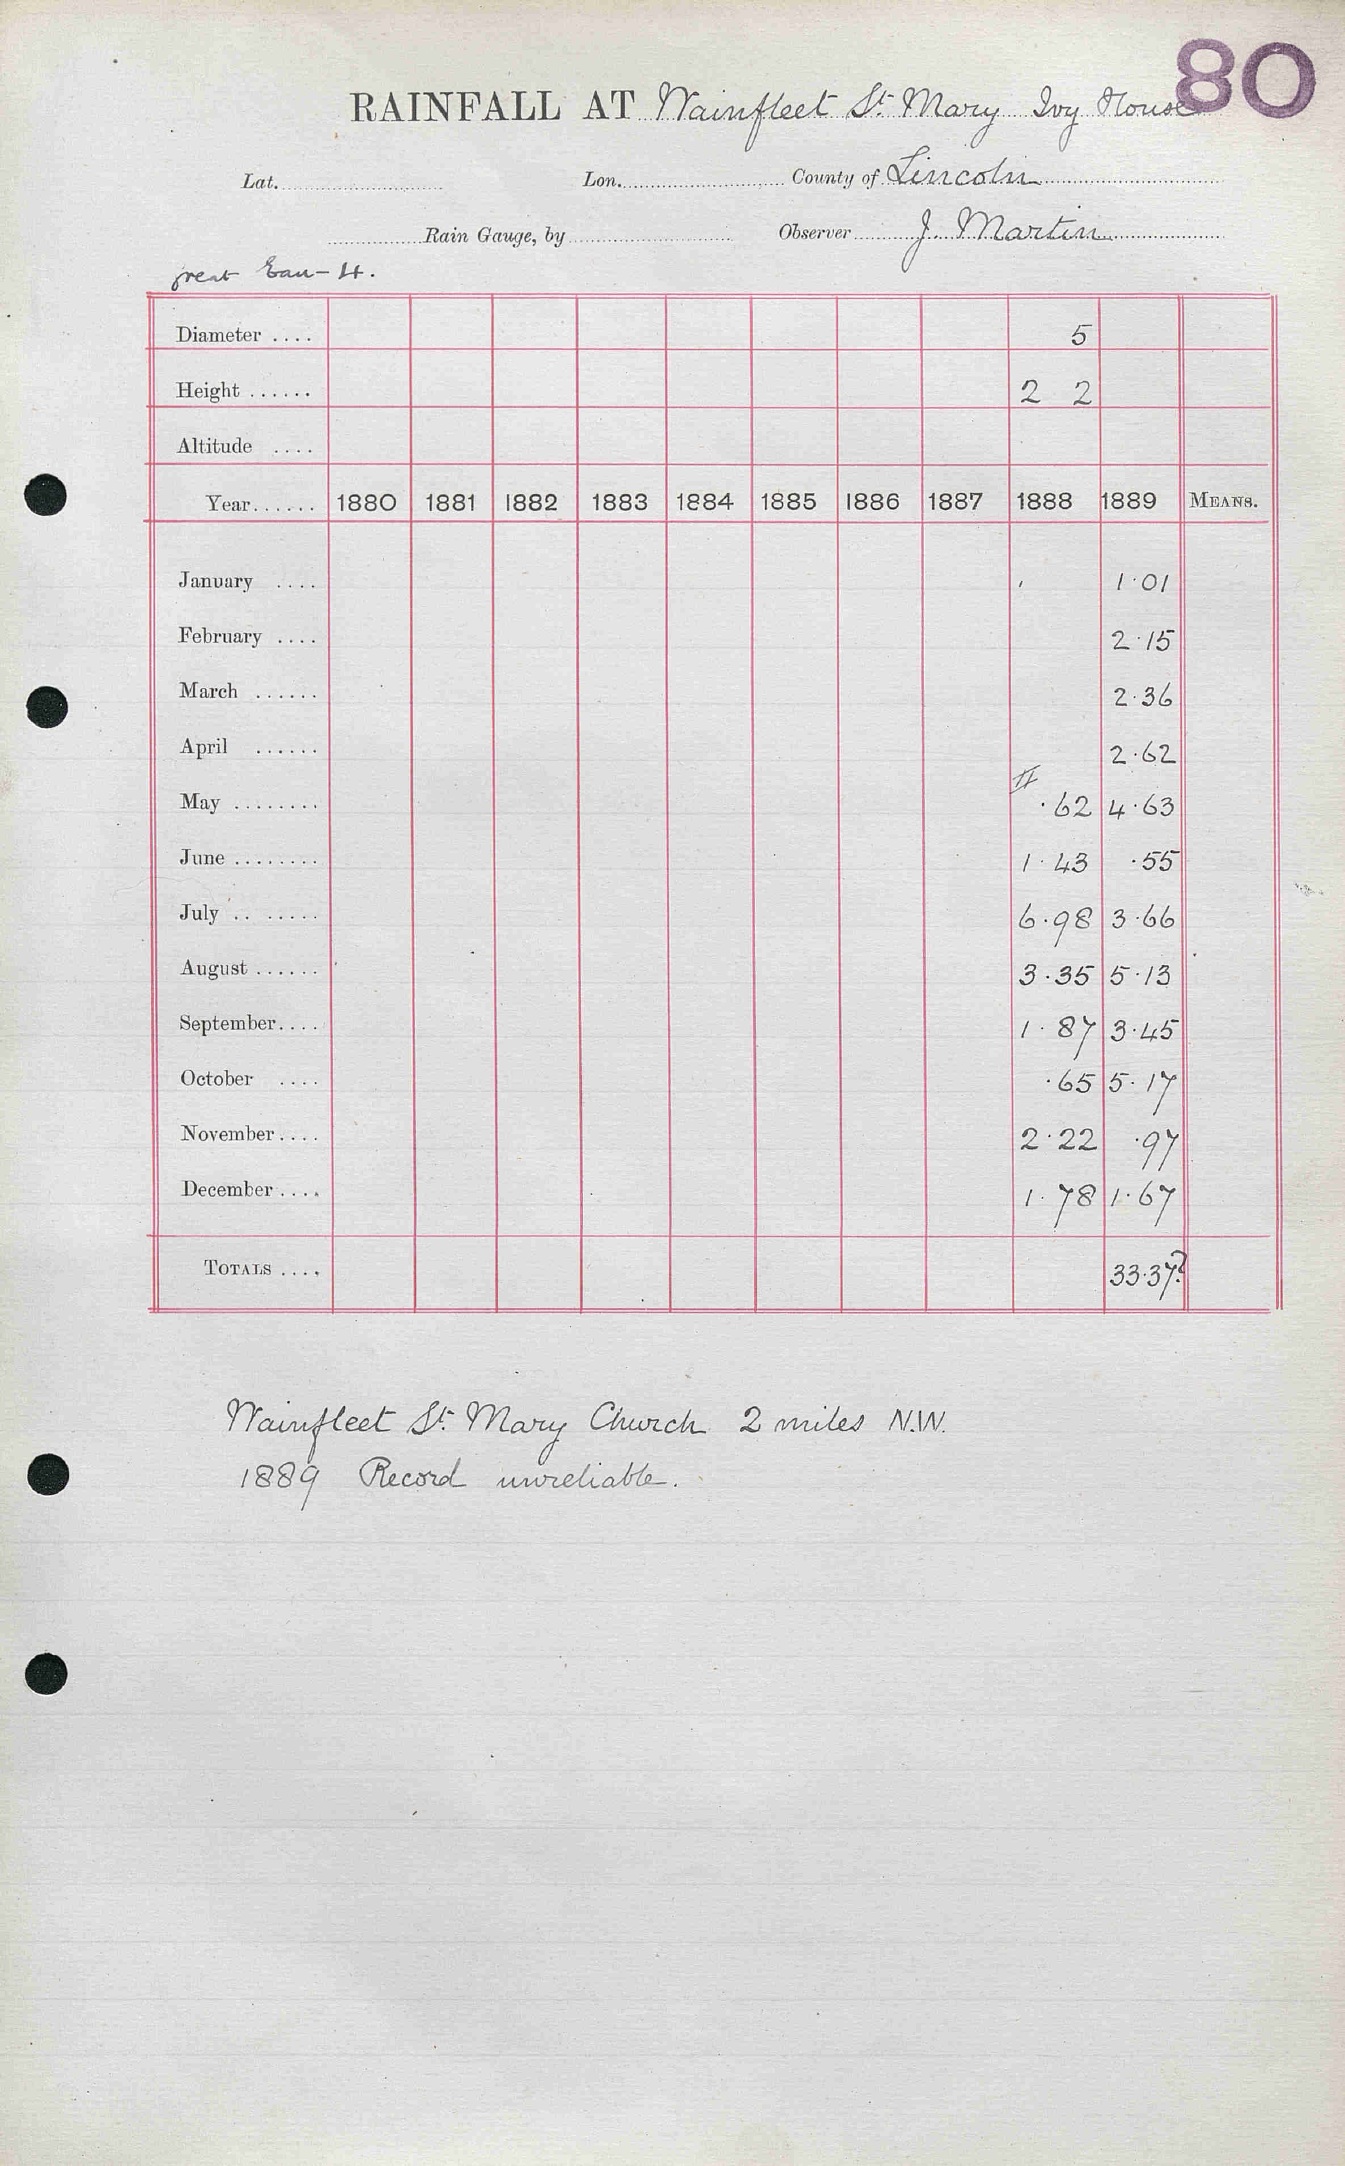 80
RAINFALL AT Wainfleet St. Mary Ivy House
Lat. Lon. County of Lincoln
Rain Gauge, by Observer J. Martin
great Eau - 4.
Diameter .... 5
Height ...... 2 2
Altitude ....
Year...... 1880 1881 1882 1883 1884 1885 1886 1887 1888 1889 MEANS.
January .... 1.01
February .... 2.15
March ...... 2.36
April ...... 2.62
May ........ .62 4.63
June ........ 1.43 .55
July .. ..... 6.98 3.66
August ...... 3.35 5.13
September.... 1.87 3.45
October .... .65 5.17
November.... 2.22 .97
December.... 1.78 1.67
TOTALS .... 33.37?
Wainfleet St. Mary Church 2 miles N.W.
1889 Record unreliable.